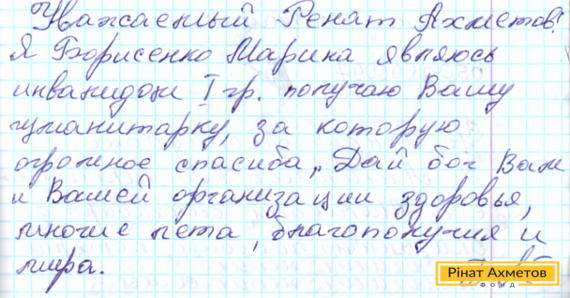 Уважаемый Ренат Ахметов!
Я Борисенко Марина являюсь
инвалидом I гр. получаю Вашу
гуманитарку, за которую
огромное спасиба,. Дай бог Вам
и Вашей организации здоровья,
многие лета, благополучия и
мира.
Рінат Ахметов
Фонд